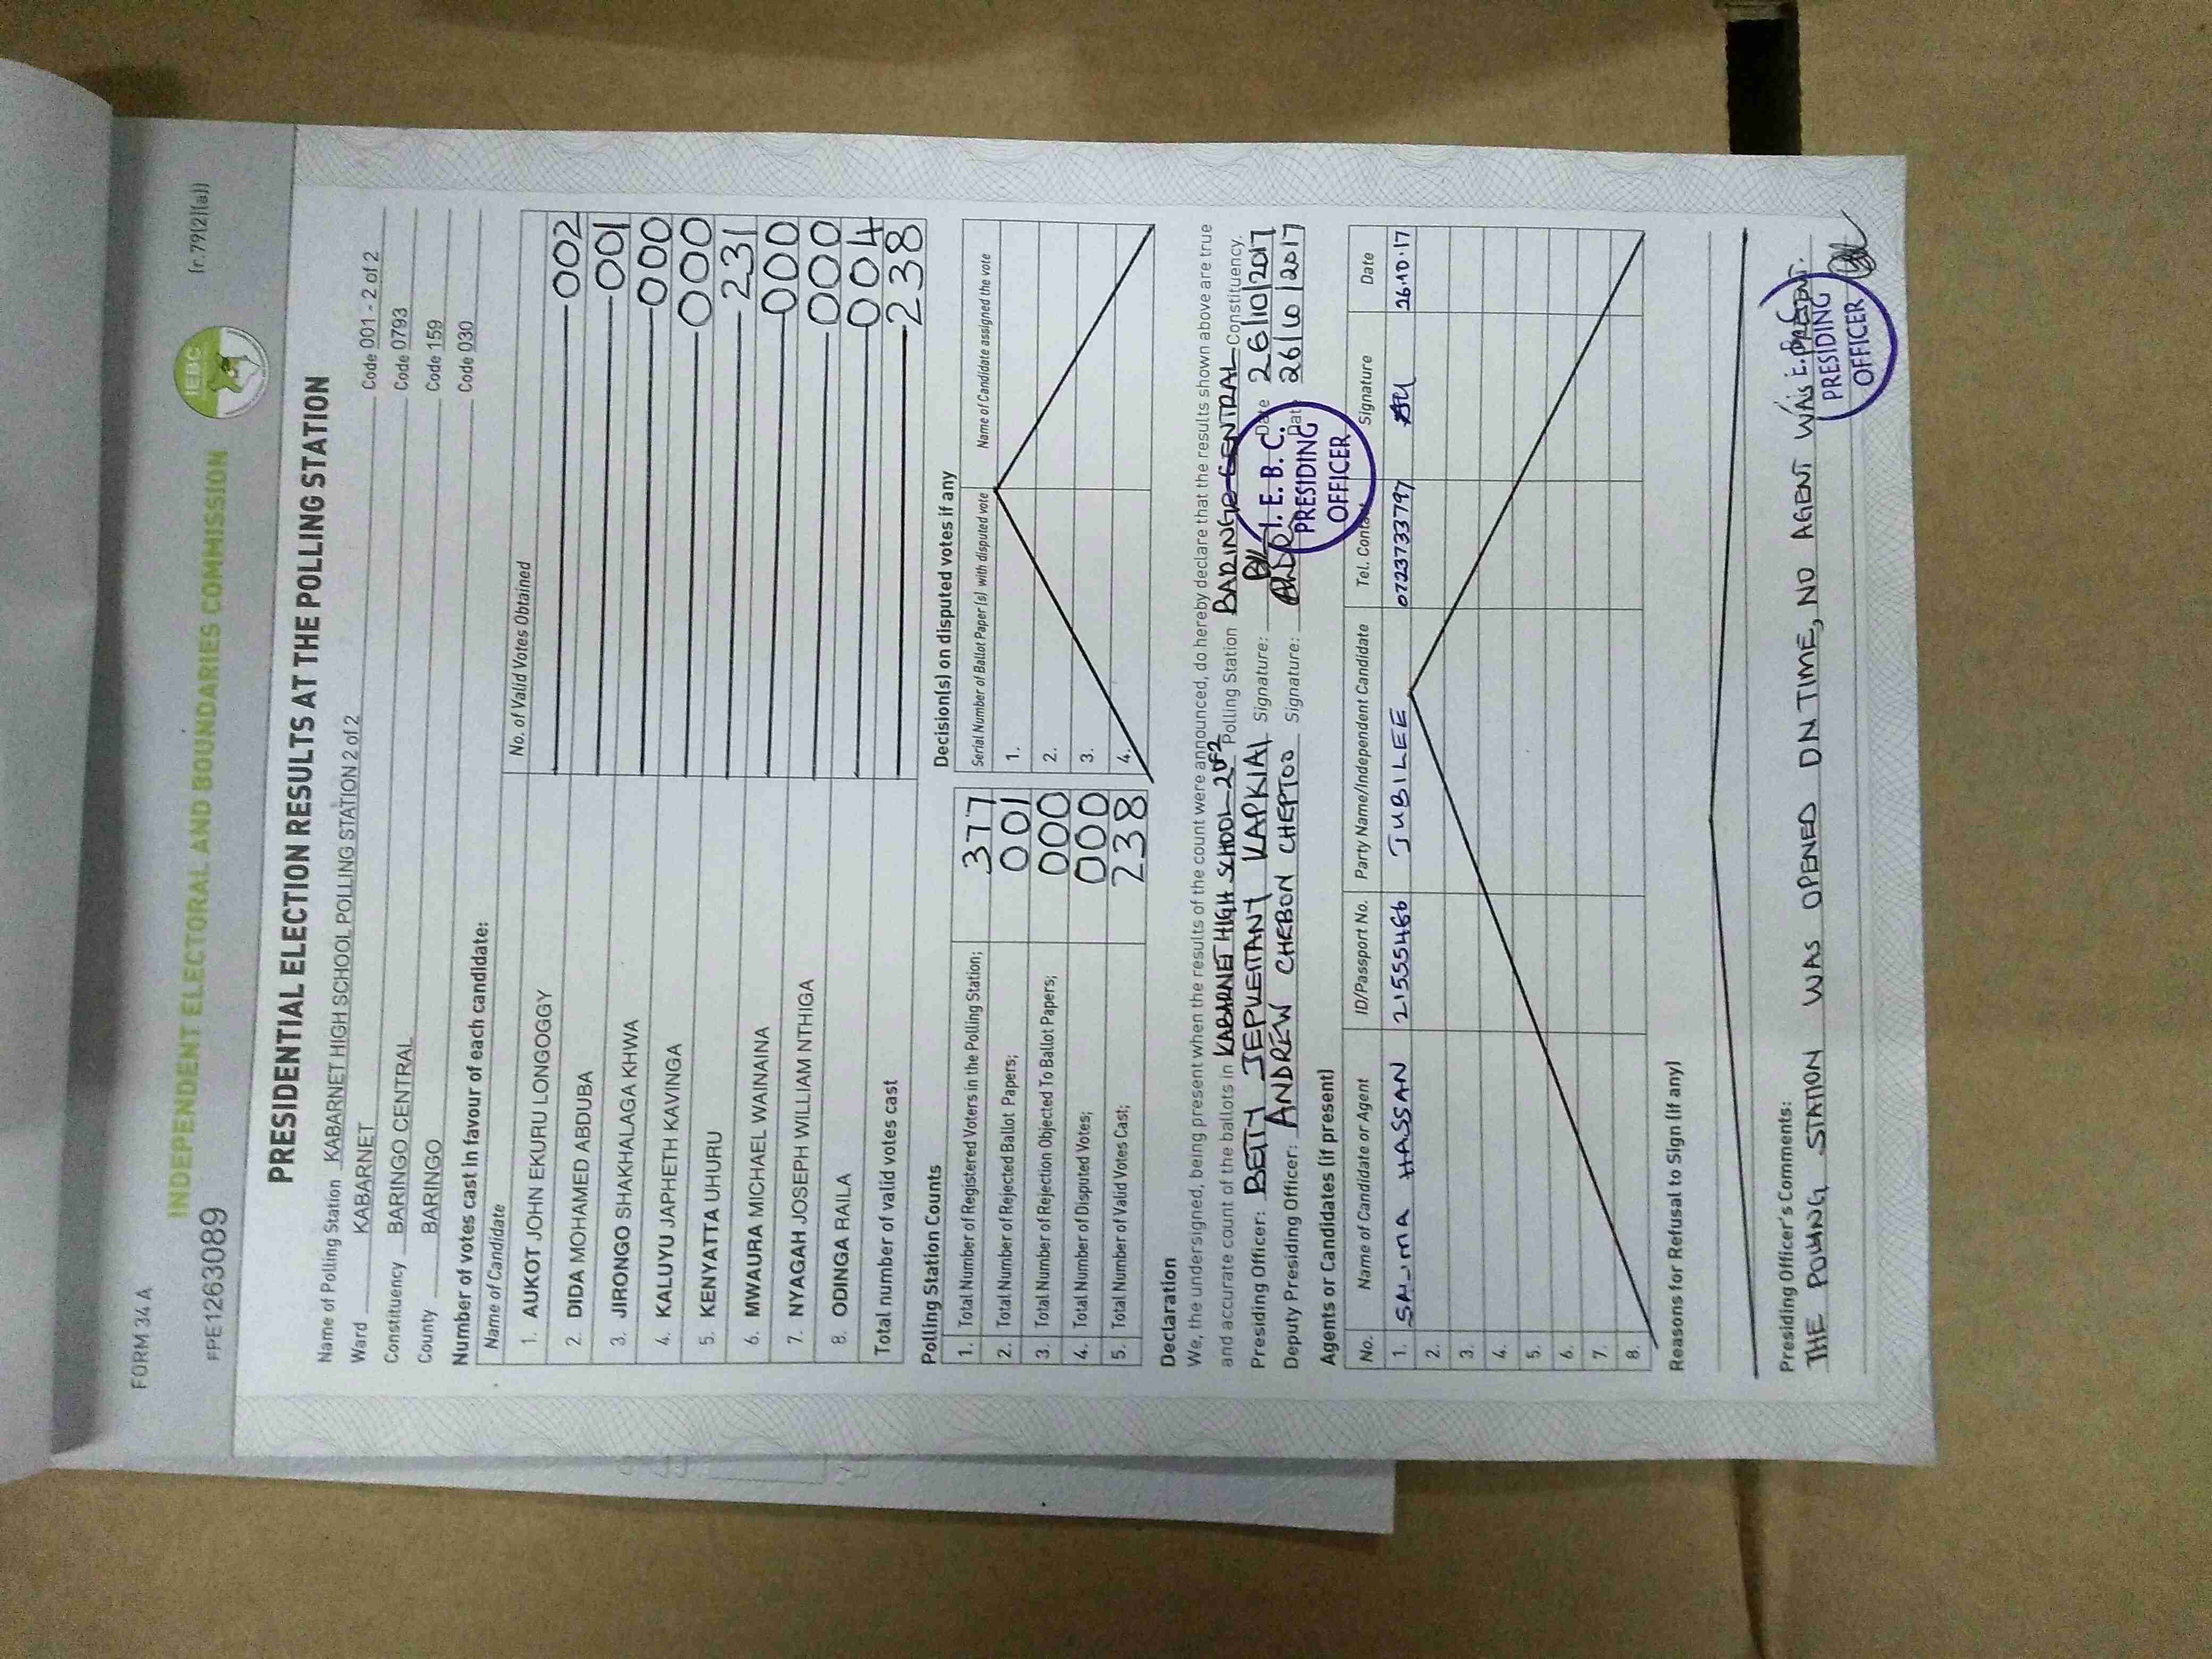 FORM 34 A
(r.79(2)(a))
FPE1263089
IEBC
INDEPENDENT ELECTORAL AND BOUNDARIES COMMISSION
PRESIDENTIAL ELECTION RESULTS AT THE POLLING STATION
Name of Polling Station KABARNET HIGH SCHOOL POLLING STATION 2 of 2 Code 001 - 2 of 2
Ward KABARNET Code 0793
Constituency BARINGO CENTRAL Code 159
County BARINGO Code 030
Number of votes cast in favour of each candidate:
Name of Candidate No. of Valid Votes Obtained
1. AUKOT JOHN EKURU LONGOGGY 002
2. DIDA MOHAMED ABDUBA 001
3. JIRONGO SHAKHALAGA KHWA 000
4. KALUYU JAPHETH KAVINGA 000
5. KENYATTA UHURU 231
6. MWAURA MICHAEL WAINAINA 000
7. NYAGAH JOSEPH WILLIAM NTHIGA 000
8. ODINGA RAILA 004
Total number of valid votes cast 238
Polling Station Counts
1. Total Number of Registered Voters in the Polling Station; 377
2. Total Number of Rejected Ballot Papers; 001
3. Total Number of Rejection Objected To Ballot Papers; 000
4. Total Number of Disputed Votes; 000
5. Total Number of Valid Votes Cast; 238
Decision(s) on disputed votes if any
Serial Number of Ballot Paper(s) with disputed vote Name of Candidate assigned the vote
1.
2.
3.
4.
Declaration
We, the undersigned, being present when the results of the count were announced, do hereby declare that the results shown above are true
and accurate count of the ballots in KABARNET HIGH SCHOOL 2 OF 2 Polling Station BARINGO CENTRAL Constituency.
Presiding Officer: BETTY JEPKEMTANY KAPKIAI Signature: Date 26/10/2017
Deputy Presiding Officer: ANDREW CHEBON CHEPTOO Signature: Date 26/10/2017
I. E. B. C.
PRESIDING
OFFICER
Agents or Candidates (if present)
No. Name of Candidate or Agent ID/Passport No. Party Name/Independent Candidate Tel. Contact Signature Date
1. SALIMA HASSAN 21555466 JUBILEE 0723733797 26.10.17
2.
3.
4.
5.
6.
7.
8.
Reasons for Refusal to Sign (if any)
Presiding Officer's Comments:
THE POLLING STATION WAS OPENED ON TIME, NO AGENT WAS PRESENT.
I. E. B. C.
PRESIDING
OFFICER